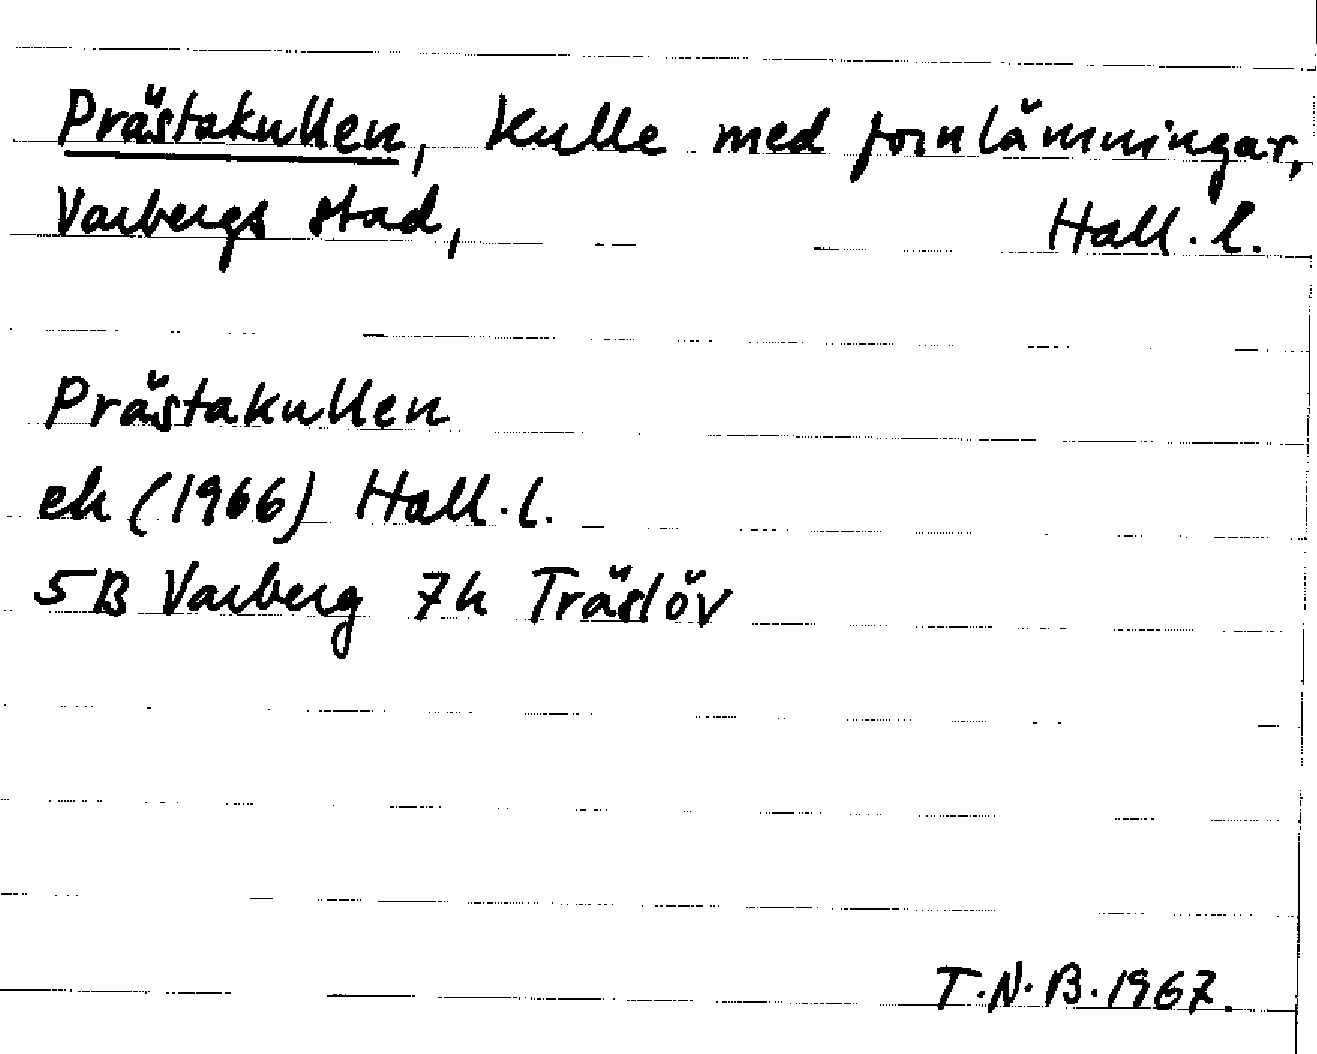 Prästakullen, Kulle med fornlämningar,
Varbergs stad, Hall. l.
Prästakullen
ek (1966) Hall. l.
5B Varberg 7h Träslöv
T.N.B. 1967.